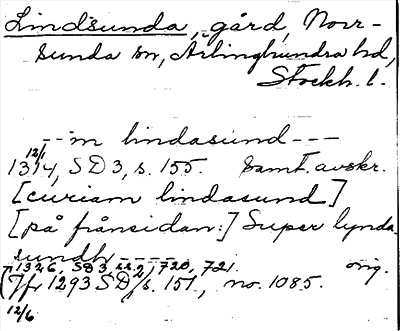 Lindsunda, gård, Norr-
sunda sn, Ärlinghundra hd,
Stockh. l.
--- in lindasund ---
12/1
1314, SD 3, s. 155. Samt. avskr.
[curiam lindasund]
[på frånsidan:] Super lynda
sundh ----
1326, SD 3, ss. 2, 720, 721. orig.
(Jfr 1293 SD/s. 151, no. 1085.
12/6